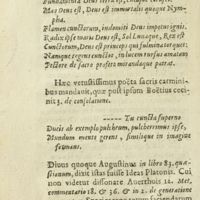 Mas Deus est, Deus est immortalis quoque Nym-
pha.
Flamen cunctarum, indomiti Deus impetus ignis.
Radix ipse maris Deus est, Sol Lunaque, Rex est
Cunctorum, Deus est princeps qui fulminat quæq;
Namque regens cunctos, in lucem rursus amatam
Pectore de sacro profert mirandaque patrat.
Hæc vetustissimus poëta sacris carmini-
bus mandauit, quæ post ipsum Boëtius ceci-
nit 3. de consolatione.
----- Tu cuncta superno
Ducis ab exemplo pulchrum, pulcherrimus ipse,
Mundum mente gerens, similique in imagine
formans.
Diuus quoque Augustinus in libro 83. quæ-
stionum, dixit istas fuisse Ideas Platonis. Cui
non videtur dissonare Auerrhois 12. Met.
commentario 18. & 36. & in 2. de generatione